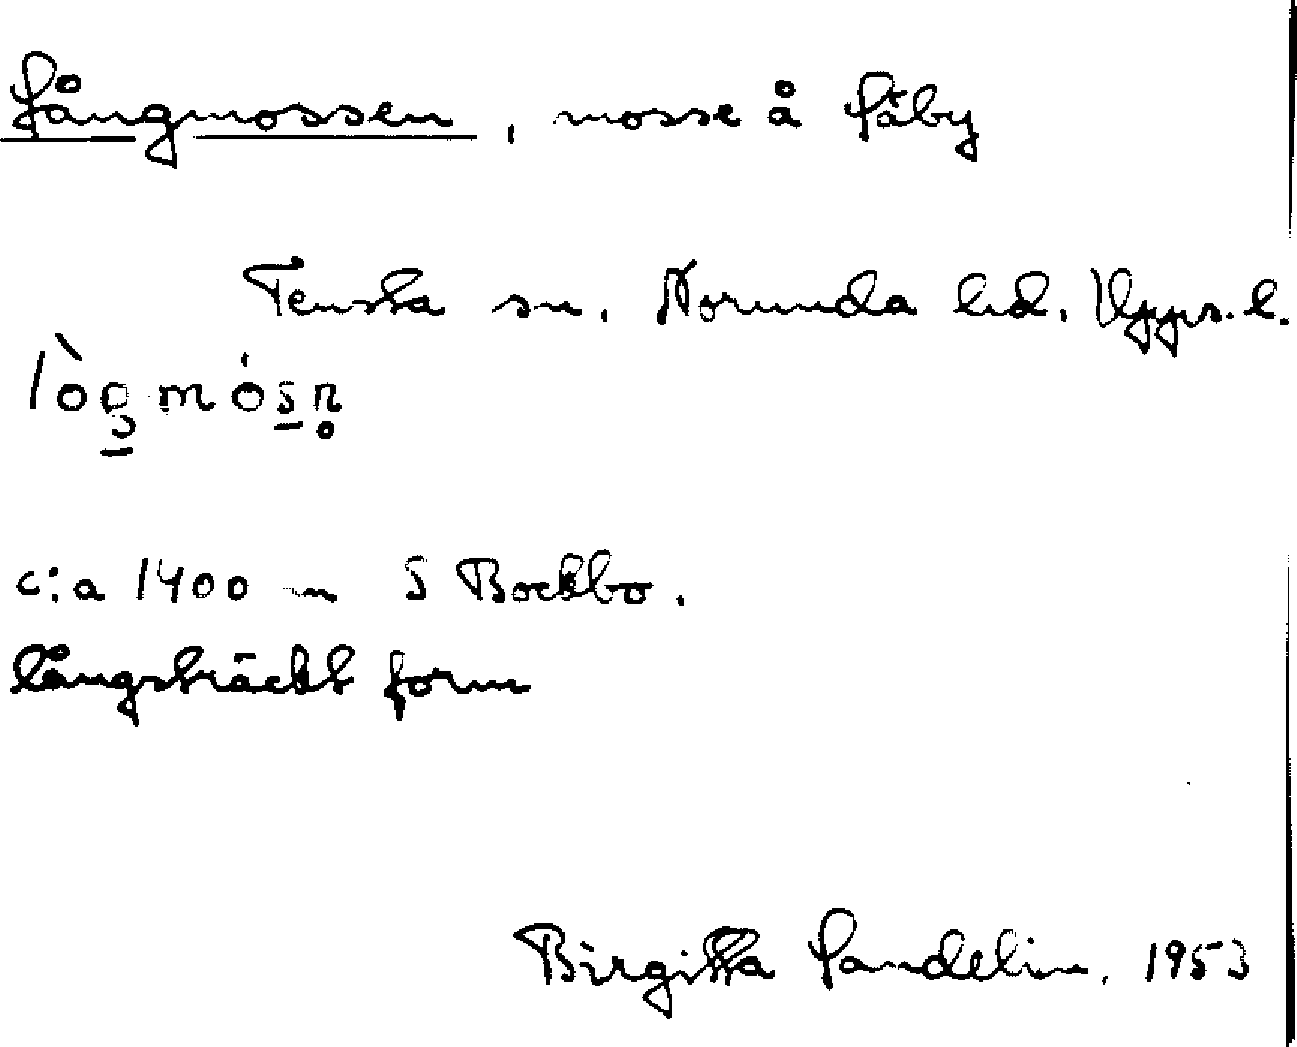 Långmossen, mosse å Säby
Tensta sn. Norunda hd. Upps. l.
c:a 1400 m S Bockbo.
långsträckt form
Birgitta Sandelin. 1953